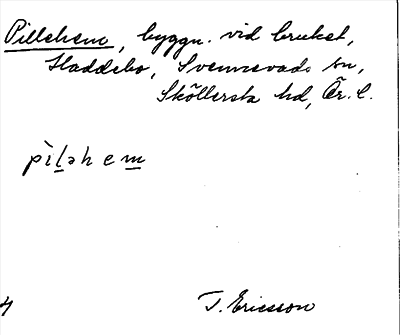 Pillehem, byggn. vid bruket,
Haddebo, Svennevads sn,
Sköllersta hd, Ör. l.
pìləhem
T. Ericsson